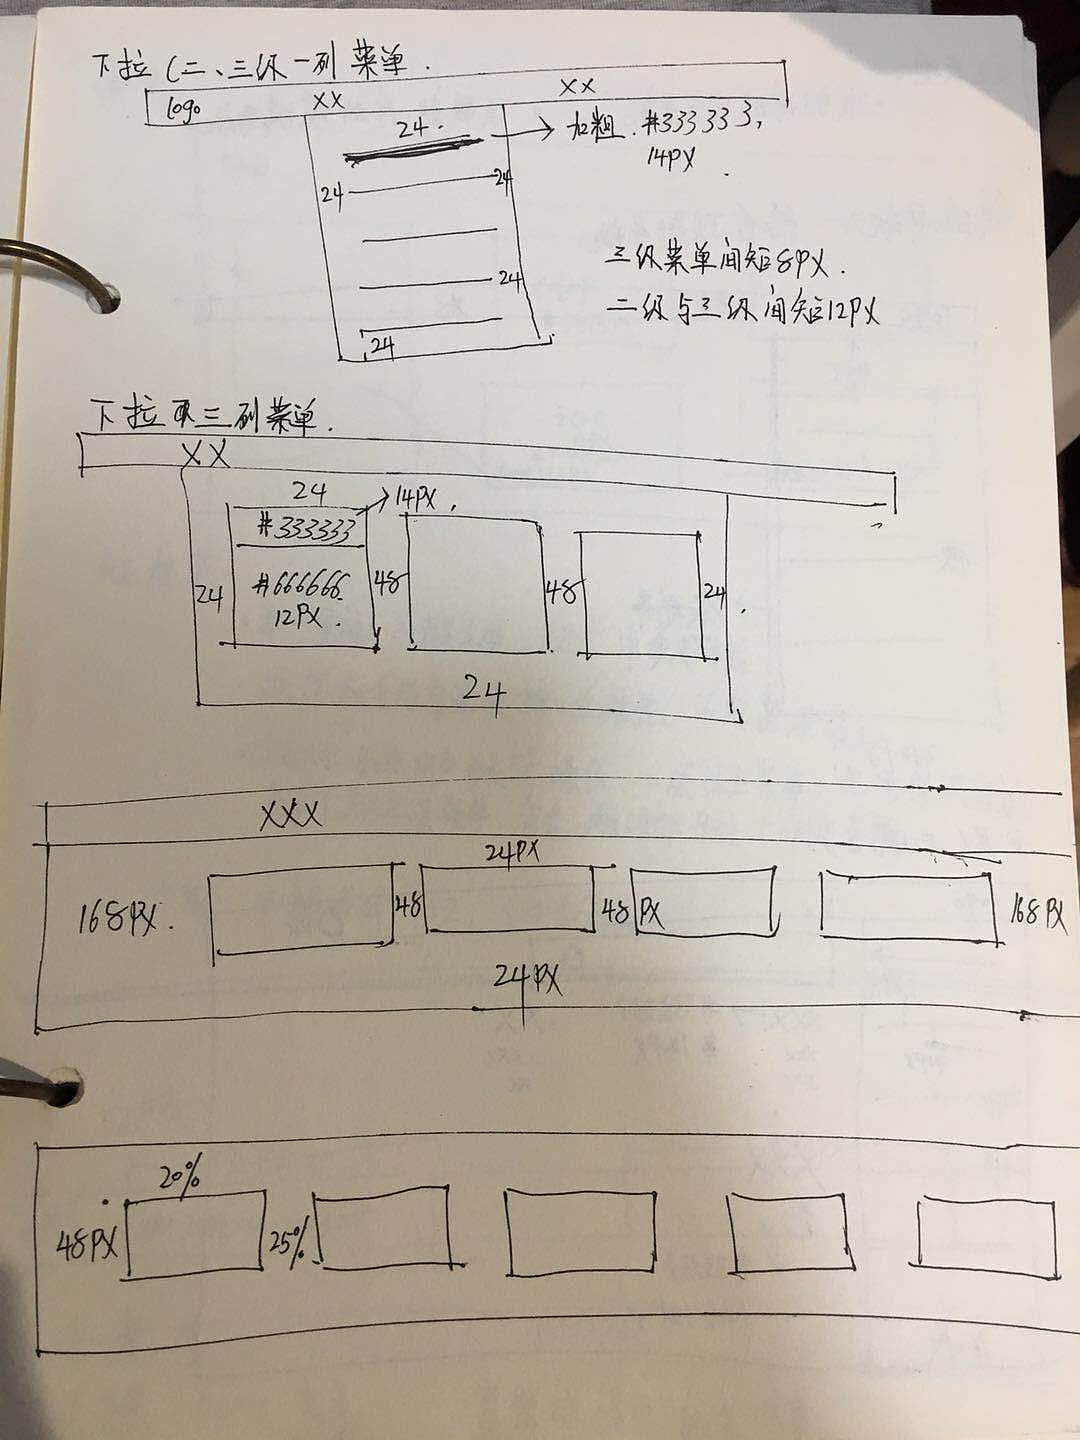 下拉(二、三级一列菜单.
logo XX XX
24. 加粗. #333333,
14PX
24 24
24
24
三级菜单间距8PX.
二级与三级间距12PX
下拉 三列菜单.
XX
24 14PX,
#333333
24 #666666 48 48 24
12PX.
24
XXX
24PX
168PX. 48 48PX 168PX
24PX
20%
48PX 25%